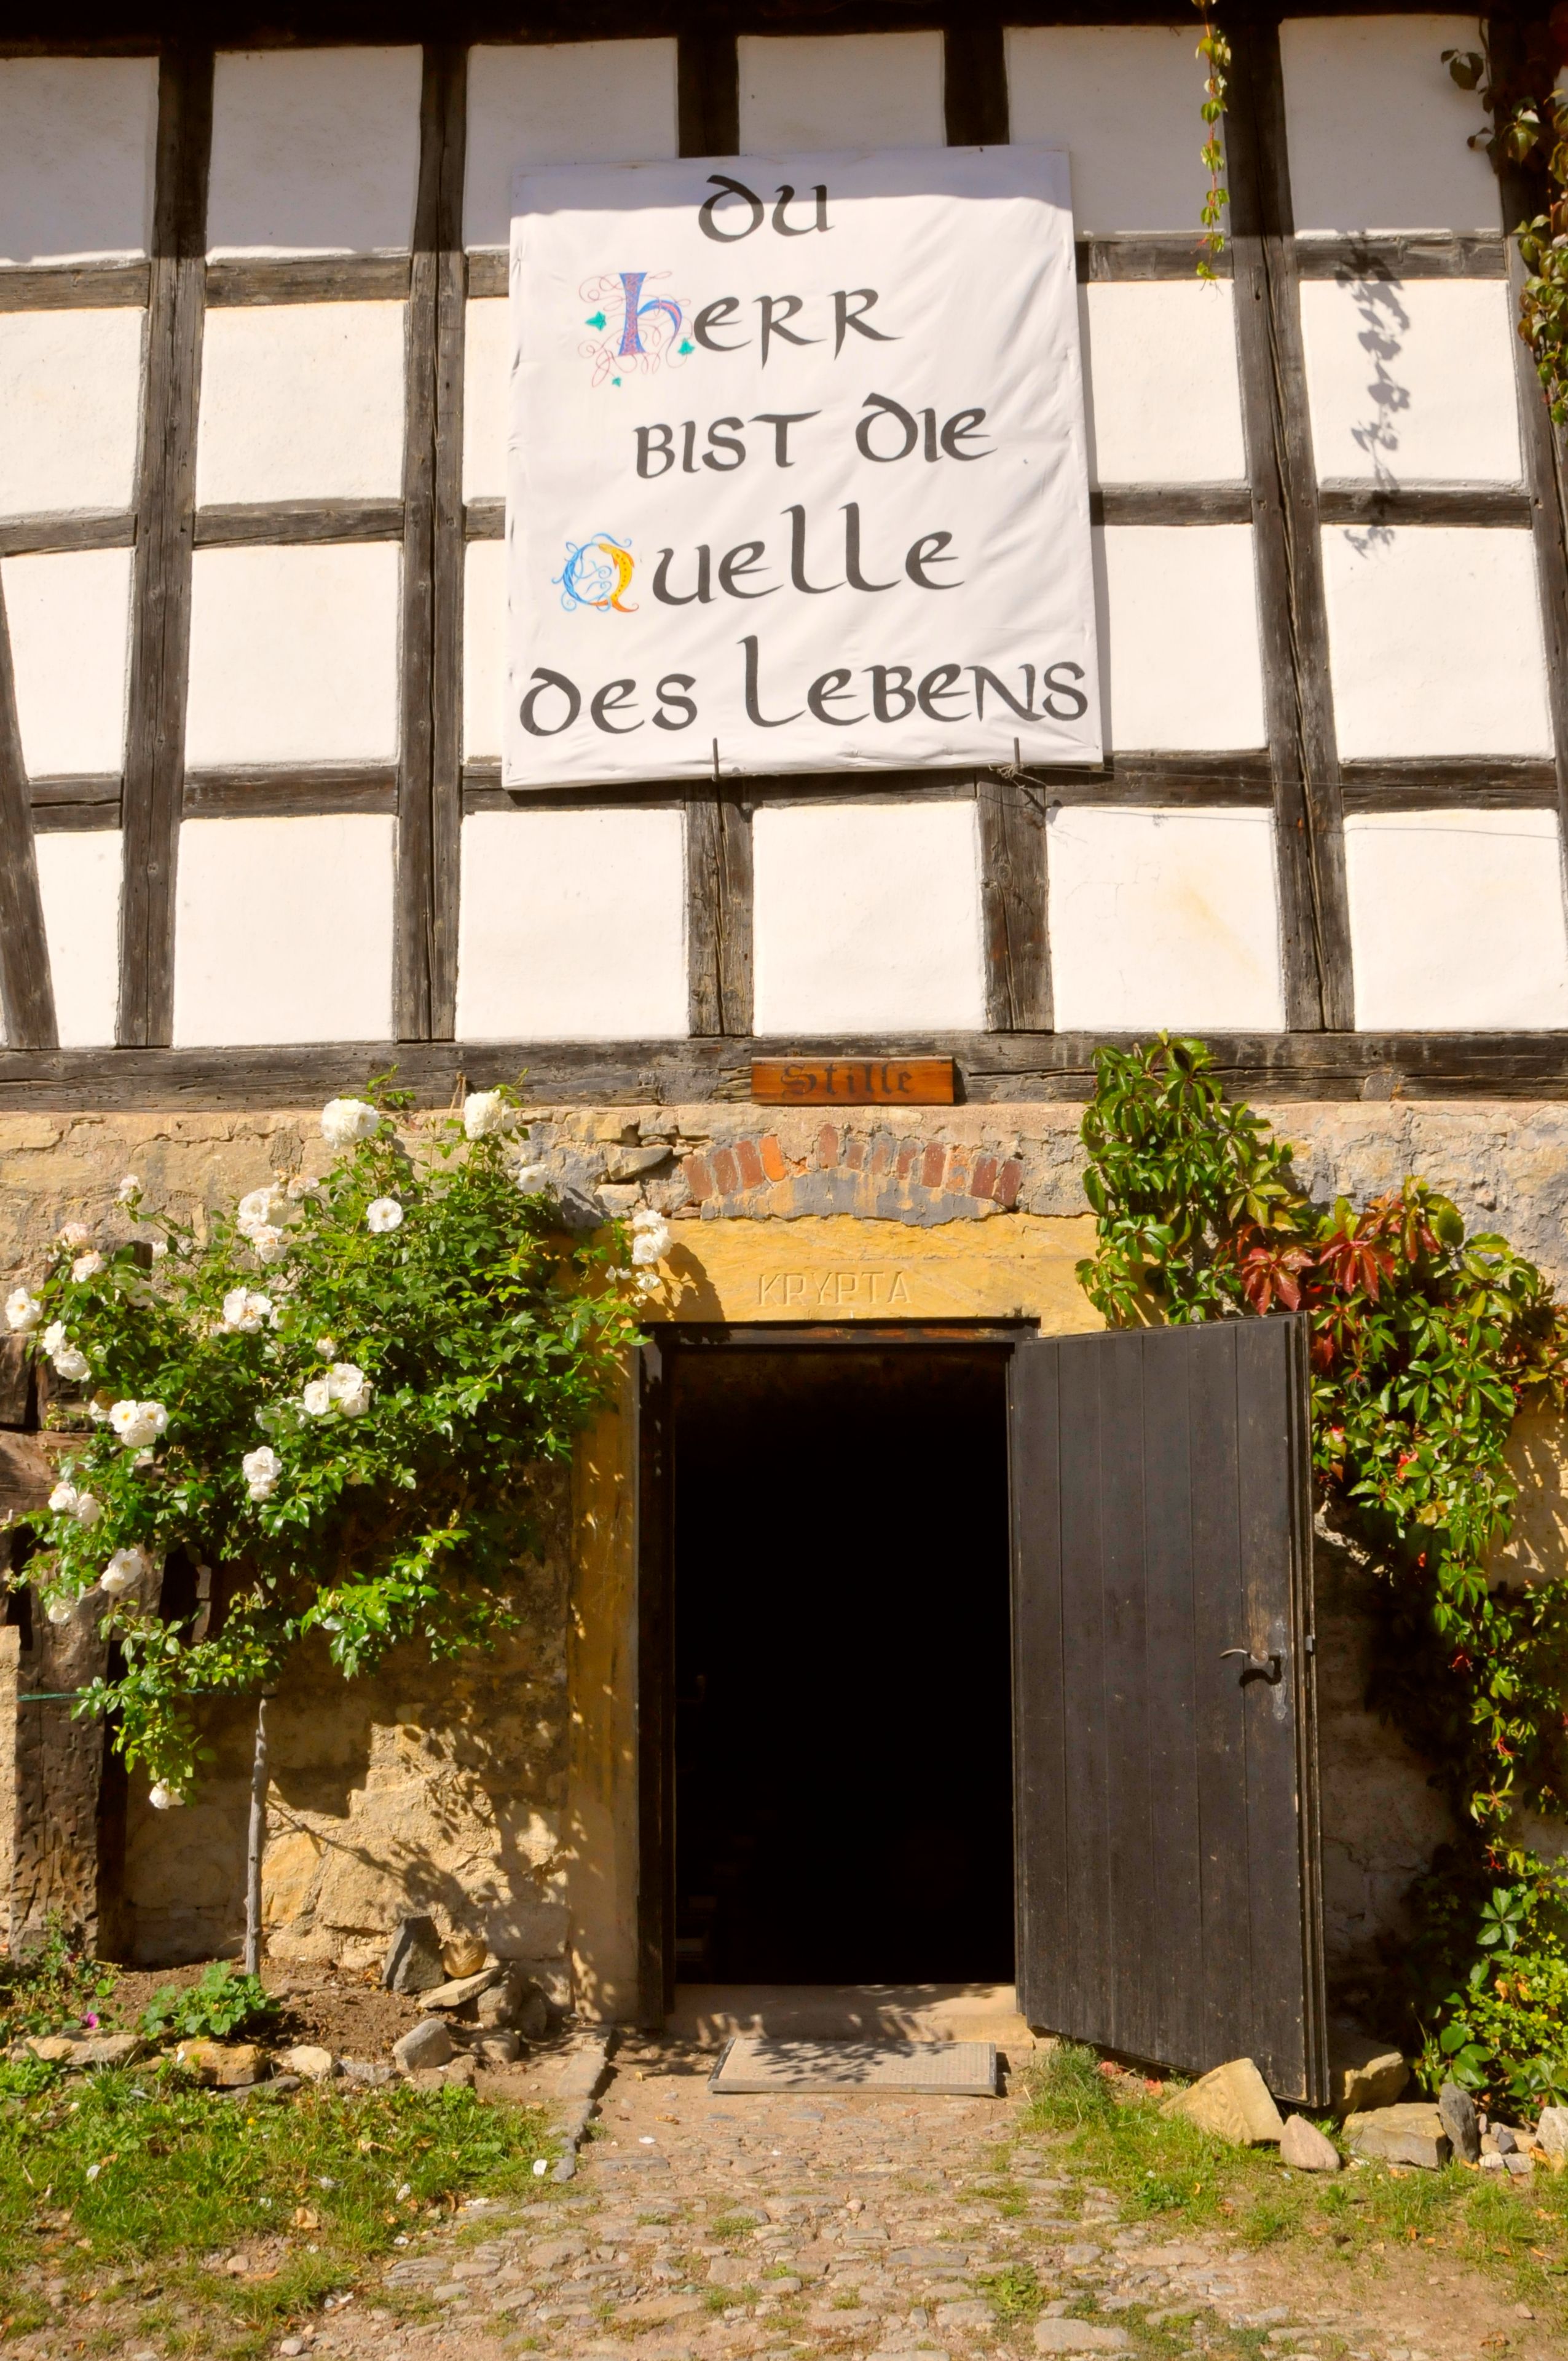 du
Herr
bist die
Quelle
des Lebens
Stille
KRYPTA